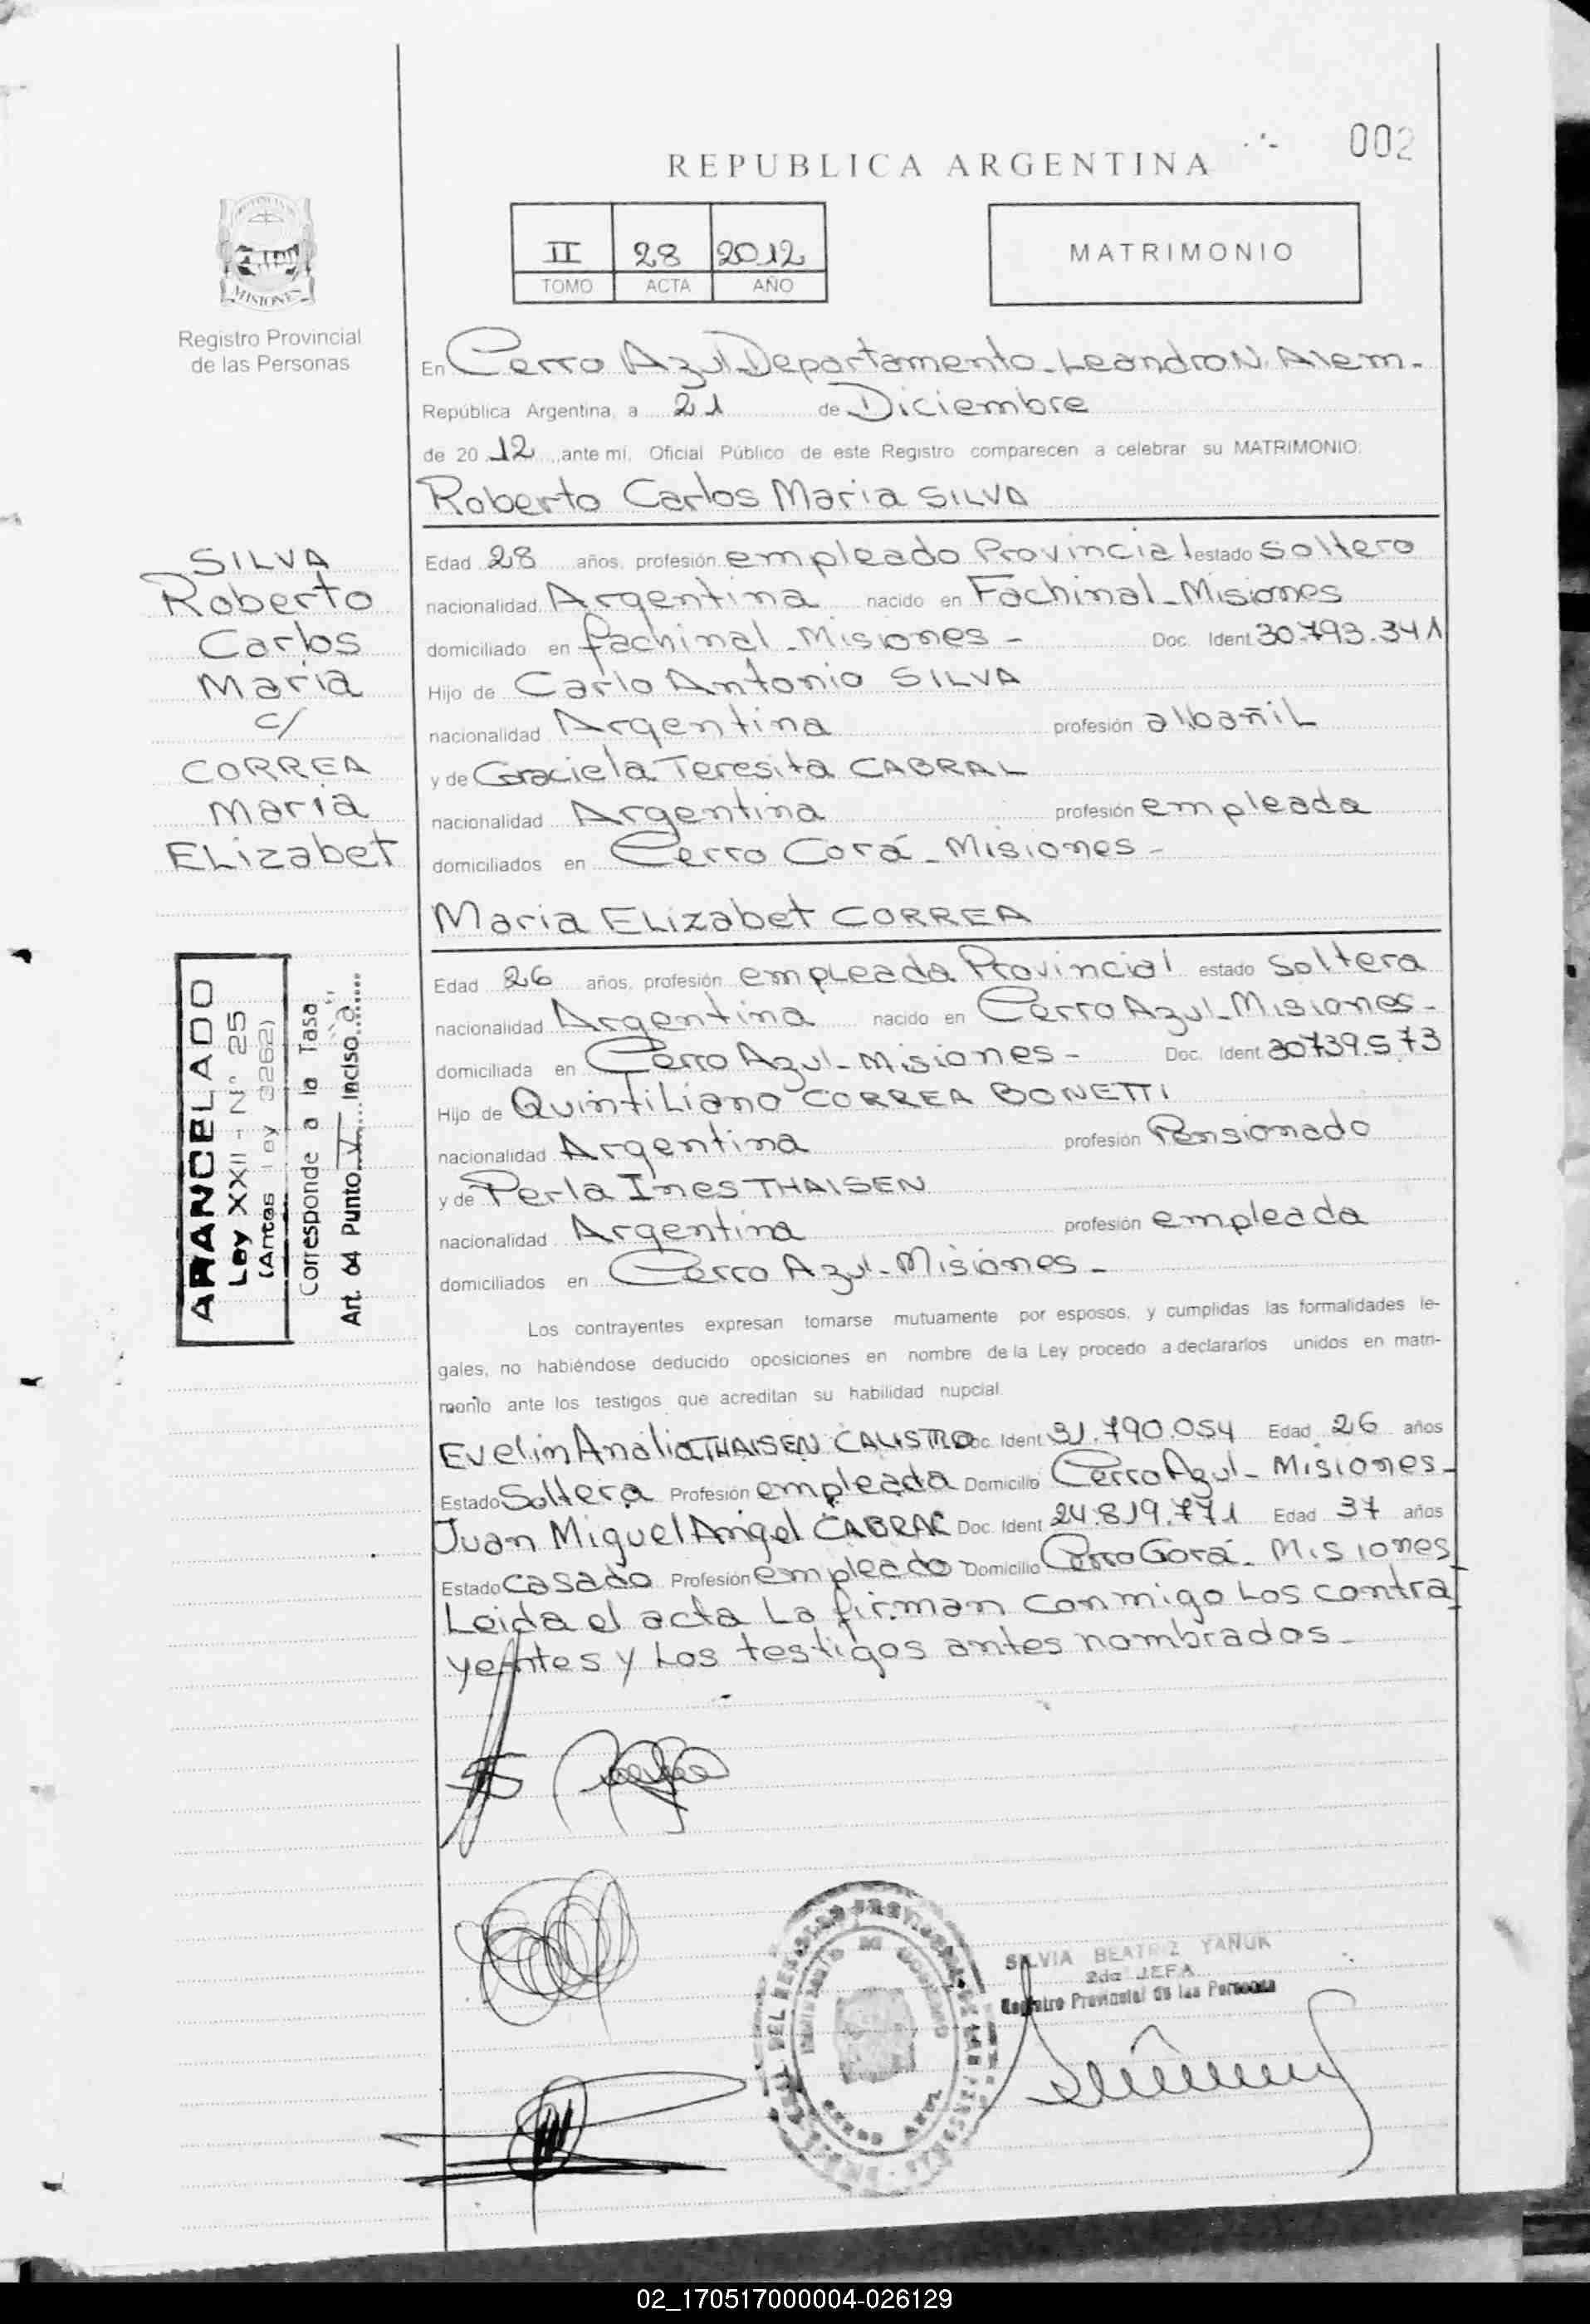 002
REPUBLICA ARGENTINA
II 28 2012
TOMO ACTA AÑO
MATRIMONIO
MISIONES
Registro Provincial
de las Personas
En Cerro Azul Departamento Leandro N. Alem.
República Argentina, a 21 de Diciembre
de 2012, ante mí, Oficial Público de este Registro comparecen a celebrar su MATRIMONIO:
Roberto Carlos Maria SILVA
SILVA
Roberto
Carlos
Maria
c/
CORREA
Maria
ELizabet
Edad 28 años, profesión empleado Provincial estado soltero
nacionalidad Argentina nacido en Fachinal - Misiones
domiciliado en fachinal - Misiones - Doc. Ident 30.793.341
Hijo de Carlo Antonio SILVA
nacionalidad Argentina profesión albañiL
y de Graciela Teresita CABRAL
nacionalidad Argentina profesión empleada
domiciliados en Cerro Corá - Misiones -
Maria ELizabet CORREA
Edad 26 años, profesión empLeada Provincial estado soltera
nacionalidad Argentina nacido en Cerro Azul - Misiones -
domiciliada en Cerro Azul - Misiones - Doc. Ident 30739.573
Hijo de QuintiLiano CORREA BONETTI
nacionalidad Argentina profesión Pensionado
y de Perla Ines THAISEN
nacionalidad Argentina profesión empleada
domiciliados en Cerro Azul - Misiones -
ARANCELADO
Ley XXII - N° 25
(Antes ley 3262)
Corresponde a la Tasa
Art. 64 Punto V Inciso a
Los contrayentes expresan tomarse mutuamente por esposos, y cumplidas las formalidades le-
gales, no habiéndose deducido oposiciones en nombre de la Ley procedo a declararlos unidos en matri-
monio ante los testigos que acreditan su habilidad nupcial.
Evelin Analia THAISEN CALISTRO Doc. Ident 31.790.054 Edad 26 años
Estado Soltera Profesión empleada Domicilio Cerro Azul - Misiones -
Juan Miguel Angel CABRAL Doc. Ident 24.819.771 Edad 37 años
Estado casado Profesión empleado Domicilio Cerro Corá - Misiones
Leida el acta La firman conmigo Los contra
yentes y Los testigos antes nombrados -
SILVIA BEATRIZ YAÑUK
2da JEFA
Registro Provincial de las Personas
CERRO AZUL
02_170517000004-026129